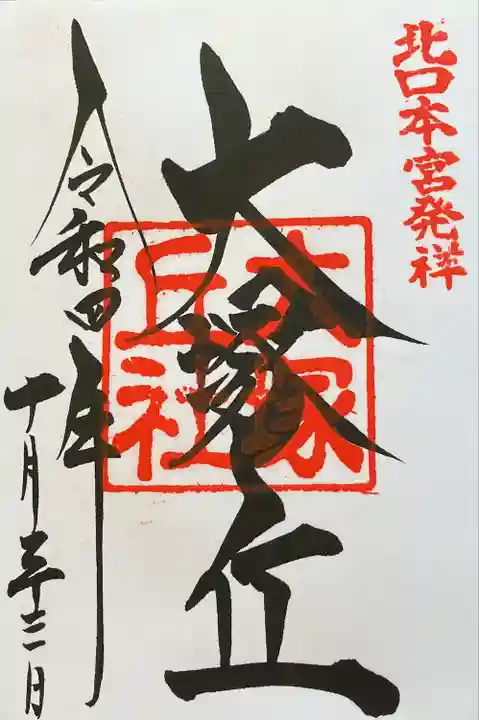 北口本宮発祥
大塚丘
大塚
丘社
令和四年
十月